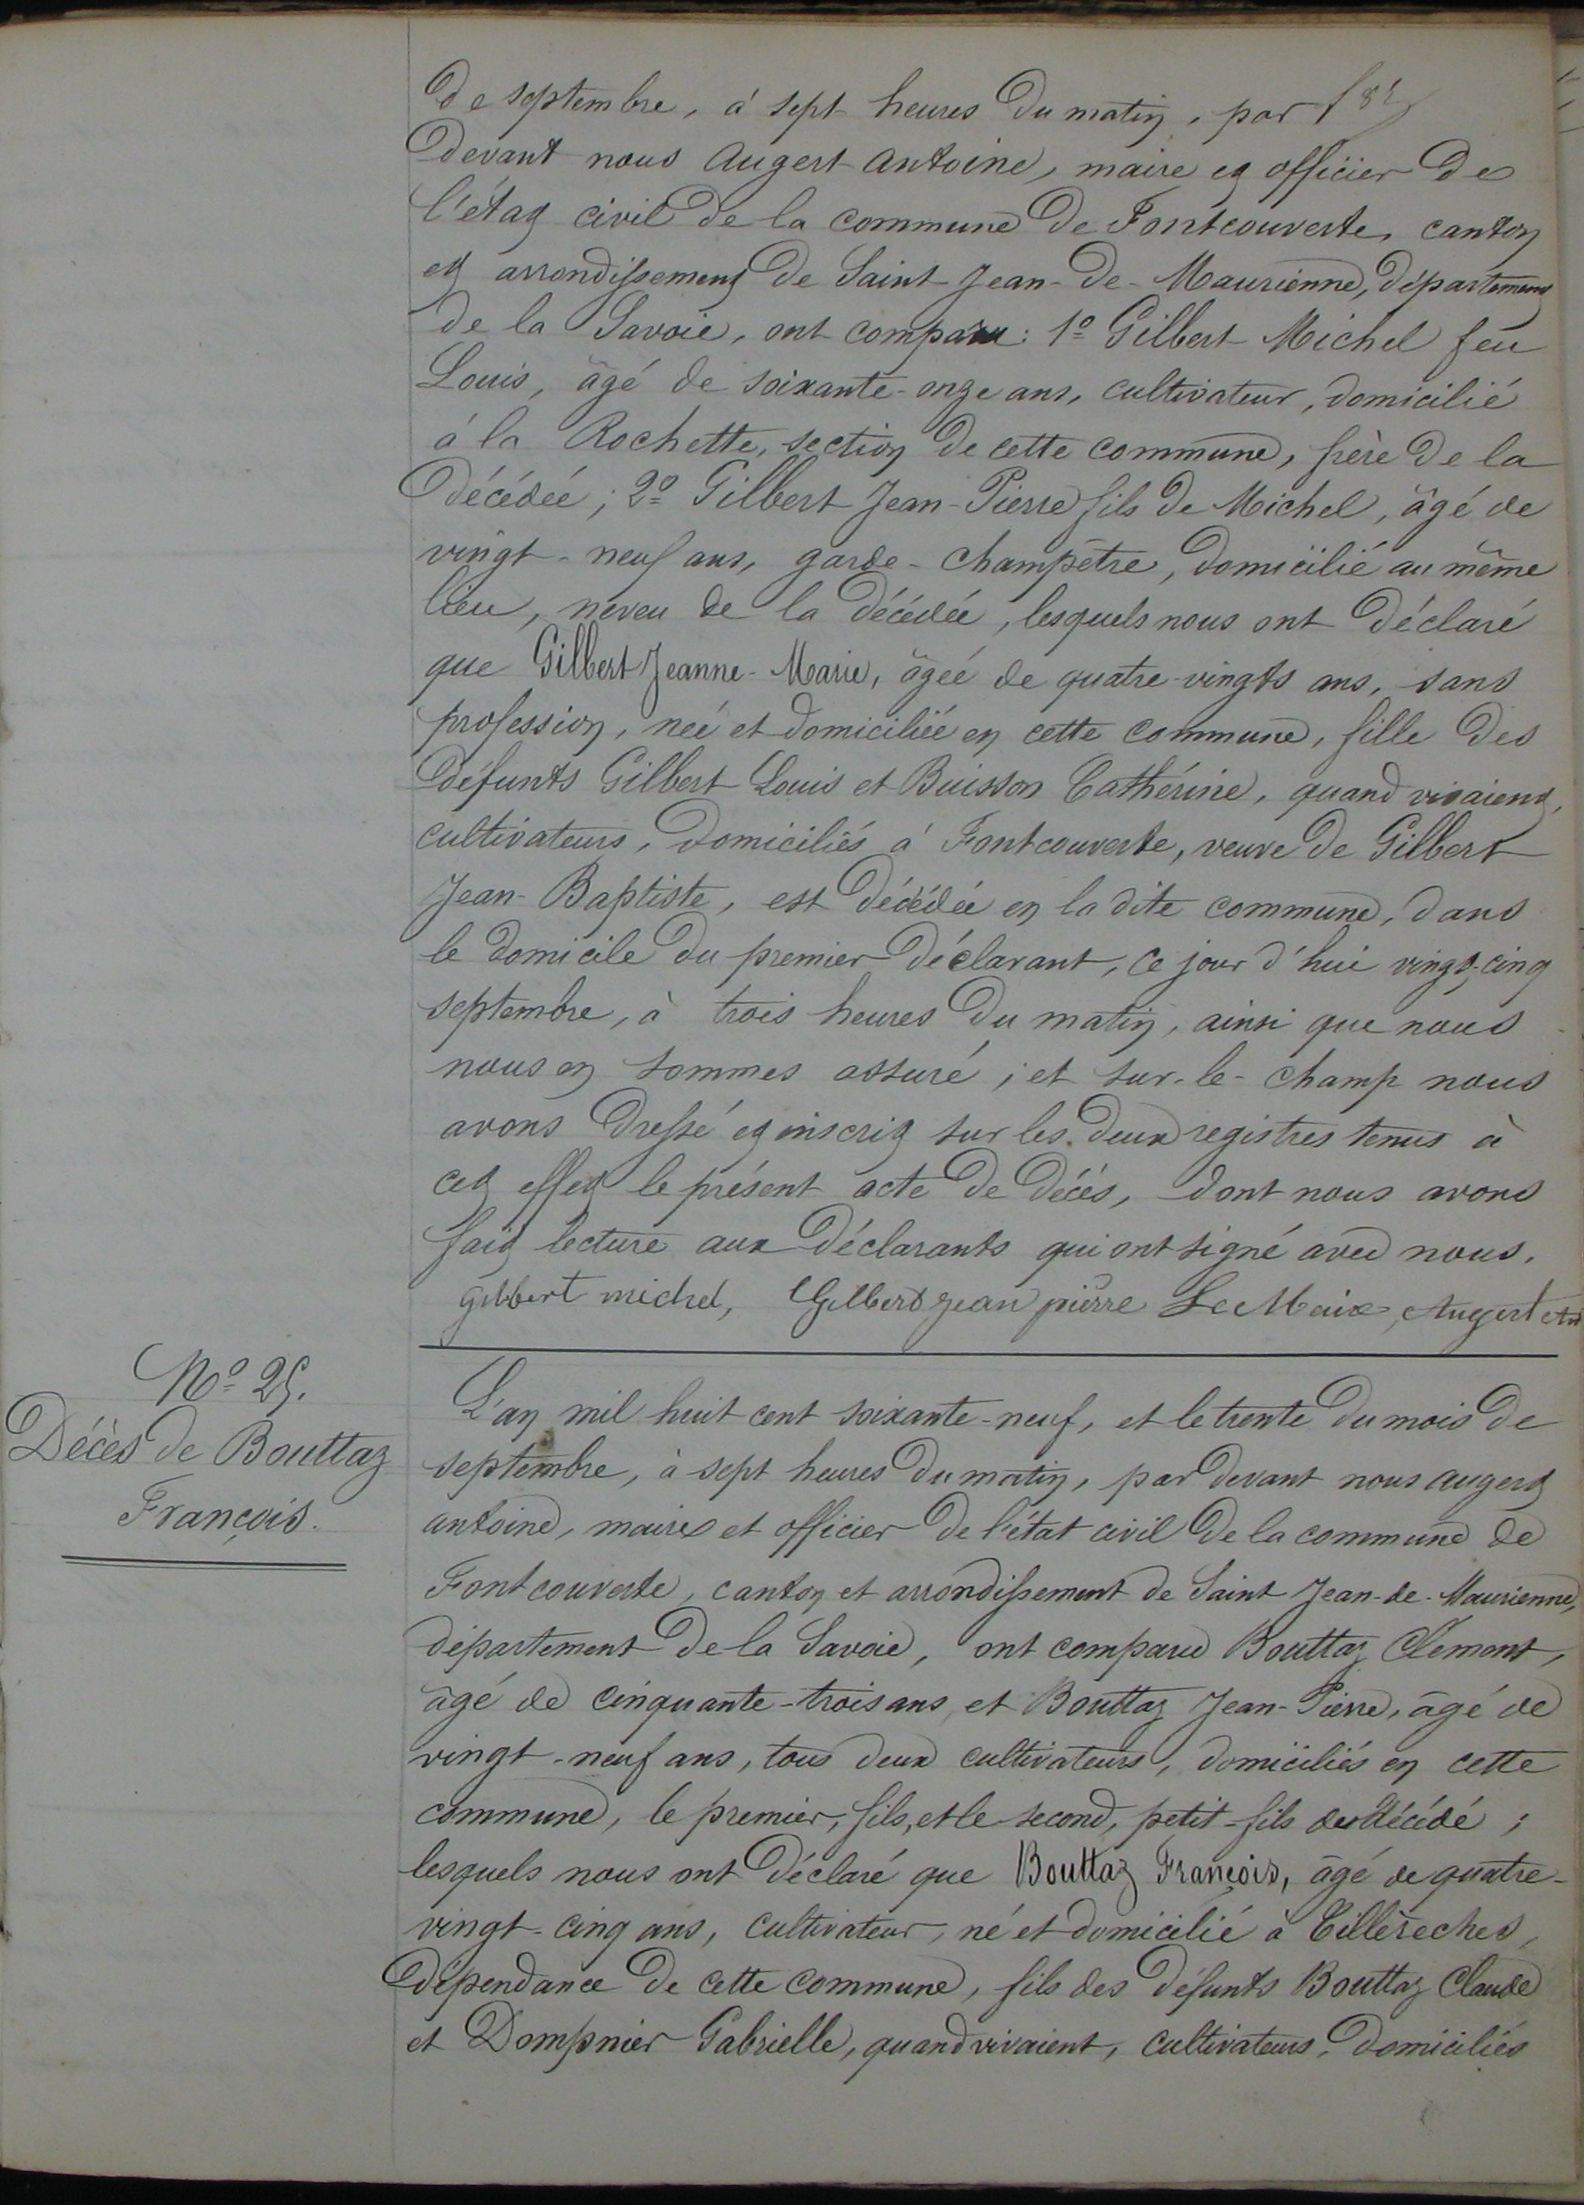 de septembre, à sept heures du matin, par
devant nous Augert Antoine, maire et officier de
l'état civil de la commune de Fontcouverte, canton
et arrondissement de Saint-Jean-de-Maurienne, département
de la Savoie, ont comparu: 1º Gilbert Michel feu
Louis, âgé de soixante-onze ans, cultivateur, domicilié
à la Rochette, section de cette commune, frère de la
décédée; 2º Gilbert Jean-Pierre fils de Michel, âgé de
vingt-neuf ans, garde-champêtre, domicilié au même
lieu, neveu de la décédée, lesquels nous ont déclaré
que Gilbert Jeanne-Marie, âgée de quatre-vingts ans, sans
profession, née et domiciliée en cette commune, fille des
défunts Gilbert Louis et Buisson Cathérine, quand vivaient,
cultivateurs, domiciliés à Fontcouverte, veuve de Gilbert
Jean-Baptiste, est décédée en la dite commune, dans
le domicile du premier déclarant, ce jour d'hui vingt-cinq
septembre, à trois heures du matin, ainsi que nous
nous en sommes assuré; et sur-le-champ nous
avons dressé et inscrit sur les deux registres tenus à
cet effet le présent acte de décès, dont nous avons
fait lecture aux déclarants qui ont signé avec nous.
gilbert michel, Gilbert jean pierre Le Maire, Augert An
Nº 25.
Décès de Bouttaz
François.
L'an mil huit cent soixante-neuf, et le trente du mois de
septembre, à sept heures du matin, par devant nous augert
antoine, maire et officier de l'état civil de la commune de
Fontcouverte, canton et arrondissement de Saint Jean-de-Maurienne,
département de la Savoie, ont comparu Bouttaz Clément,
âgé de cinquante-trois ans, et Bouttaz Jean-Pierre, âgé de
vingt-neuf ans, tous deux cultivateurs, domiciliés en cette
commune, le premier, fils, et le second, petit-fils du décédé;
lesquels nous ont déclaré que Bouttaz François, âgé de quatre-
vingt-cinq ans, cultivateur, né et domicilié à Tillèreches,
dépendance de cette commune, fils des défunts Bouttaz Claude
et Dompnier Gabrielle, quand vivaient, cultivateurs, domiciliés